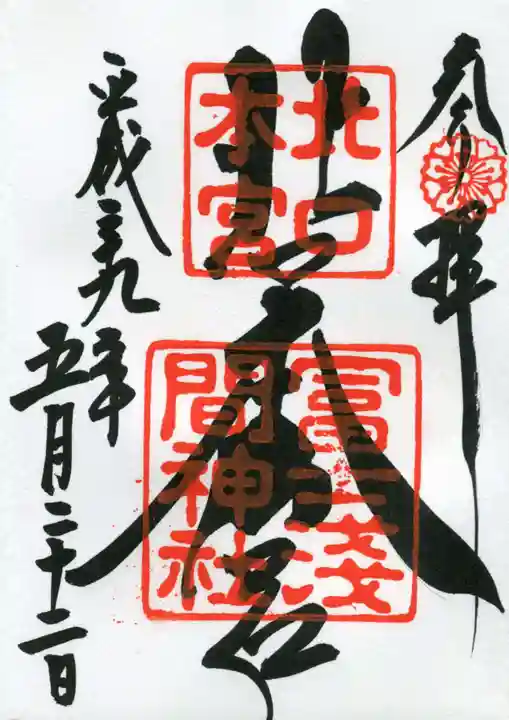 参拝
北口本宮
北口
本宮
冨士淺
間神社
平成二九年
五月二十二日